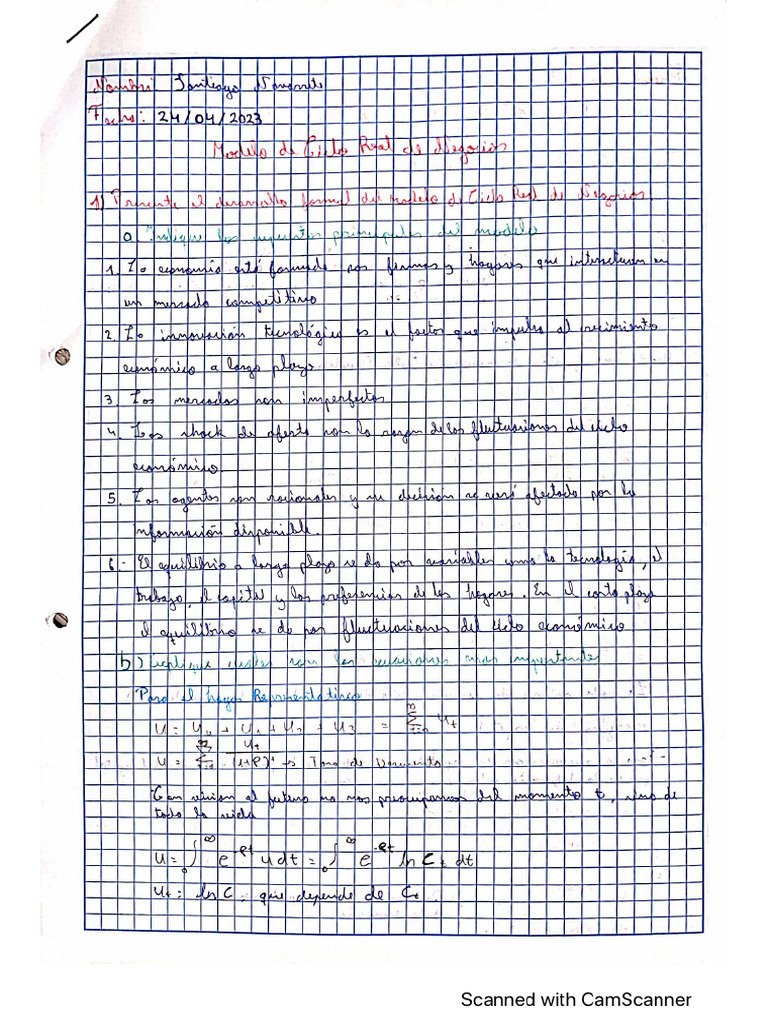 Nombre: Santiago Navarrete
Fecha: 24/04/2023
Modelo de Ciclo Real de Negocios
1) Presente el desarrollo formal del modelo de Ciclo Real de Negocios.
a. Indique los supuestos principales del modelo
1. La economía está formada por firmas y hogares que interactúan en
un mercado competitivo
2. La innovación tecnológica es el factor que impulsa al crecimiento
económico a largo plazo
3. Los mercados son imperfectos
4. Los shock de oferta son la razon de las fluctuaciones del ciclo
económico.
5. Los agentes son racionales y su decisión se verá afectado por la
información disponible.
6.- El equilibrio a largo plazo se da por variables como la tecnología, el
trabajo, el capital y las preferencias de los hogares. En el corto plazo
el equilibrio se da por fluctuaciones del ciclo económico
b) Explique cuales son las ecuaciones mas importantes
Para el hogar Representativo
U = U₀ + U₁ + U₂ + U₃ = Σ Ut
U = Σ Ut/(1+ρ)ᵗ → Tasa de Descuento
Con vision al futuro no nos preocupamos del momento t, sino de
toda la vida
U = ∫₀^∞ e^-ρt u dt = ∫₀^∞ e^-ρt ln Ct dt
Ut = ln C, que depende de Ct.
Scanned with CamScanner